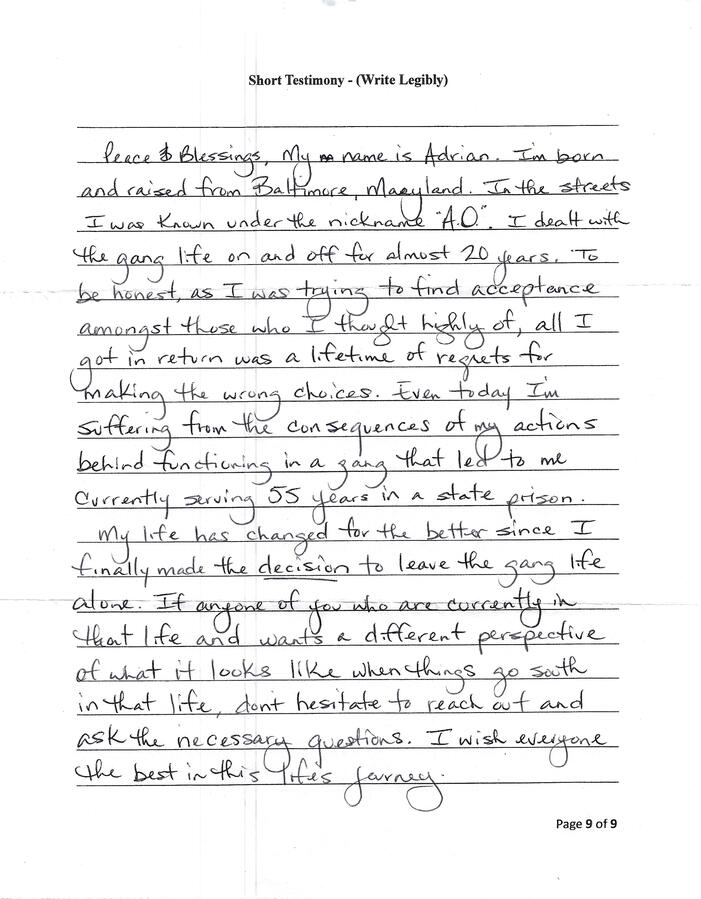 Short Testimony - (Write Legibly)
Peace & Blessings, My name is Adrian. I'm born
and raised from Baltimore, Maryland. In the streets
I was known under the nickname "A.O.". I dealt with
the gang life on and off for almost 20 years. To
be honest, as I was trying to find acceptance
amongst those who I thought highly of, all I
got in return was a lifetime of regrets for
making the wrong choices. Even today I'm
suffering from the consequences of my actions
behind functioning in a gang that led to me
currently serving 55 years in a state prison.
My life has changed for the better since I
finally made the decision to leave the gang life
alone. If anyone of you who are currently in
that life and wants a different perspective
of what it looks like when things go south
in that life, dont hesitate to reach out and
ask the necessary questions. I wish everyone
the best in this life's journey.
Page 9 of 9